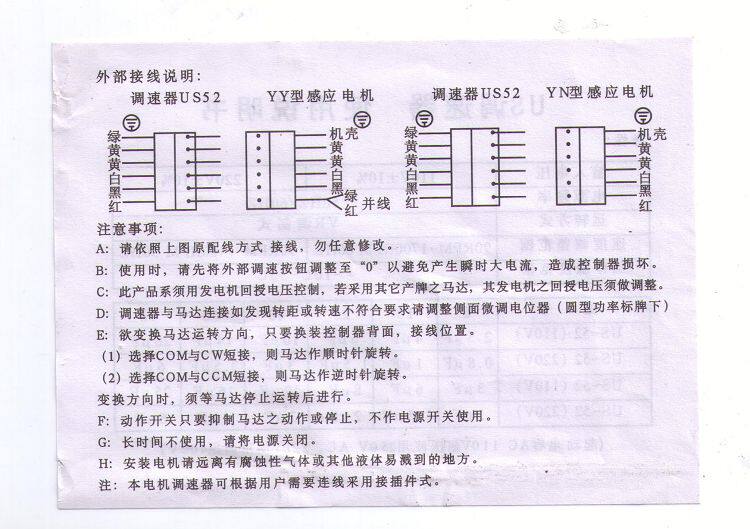 外部接线说明:
调速器US52 YY型感应电机 调速器US52 YN型感应电机
绿 机壳 绿 机壳
黄 黄 黄 黄
黄 黄 黄 黄
白 白 白 白
黑 黑 黑 黑
红 绿 红 并线 红 红
注意事项:
A: 请依照上图原配线方式 接线，勿任意修改。
B: 使用时，请先将外部调速按钮调整至“0”以避免产生瞬时大电流，造成控制器损坏。
C: 此产品系须用发电机回授电压控制，若采用其它产牌之马达，其发电机之回授电压须做调整。
D: 调速器与马达连接如发现转距或转速不符合要求请调整侧面微调电位器（圆型功率标牌下）
E: 欲变换马达运转方向，只要换装控制器背面，接线位置。
(1) 选择COM与CW短接，则马达作顺时针旋转。
(2) 选择COM与CCM短接，则马达作逆时针旋转。
变换方向时，须等马达停止运转后进行。
F: 动作开关只要抑制马达之动作或停止，不作电源开关使用。
G: 长时间不使用，请将电源关闭。
H: 安装电机请远离有腐蚀性气体或其他液体易溅到的地方。
注: 本电机调速器可根据用户需要连线采用接插件式。